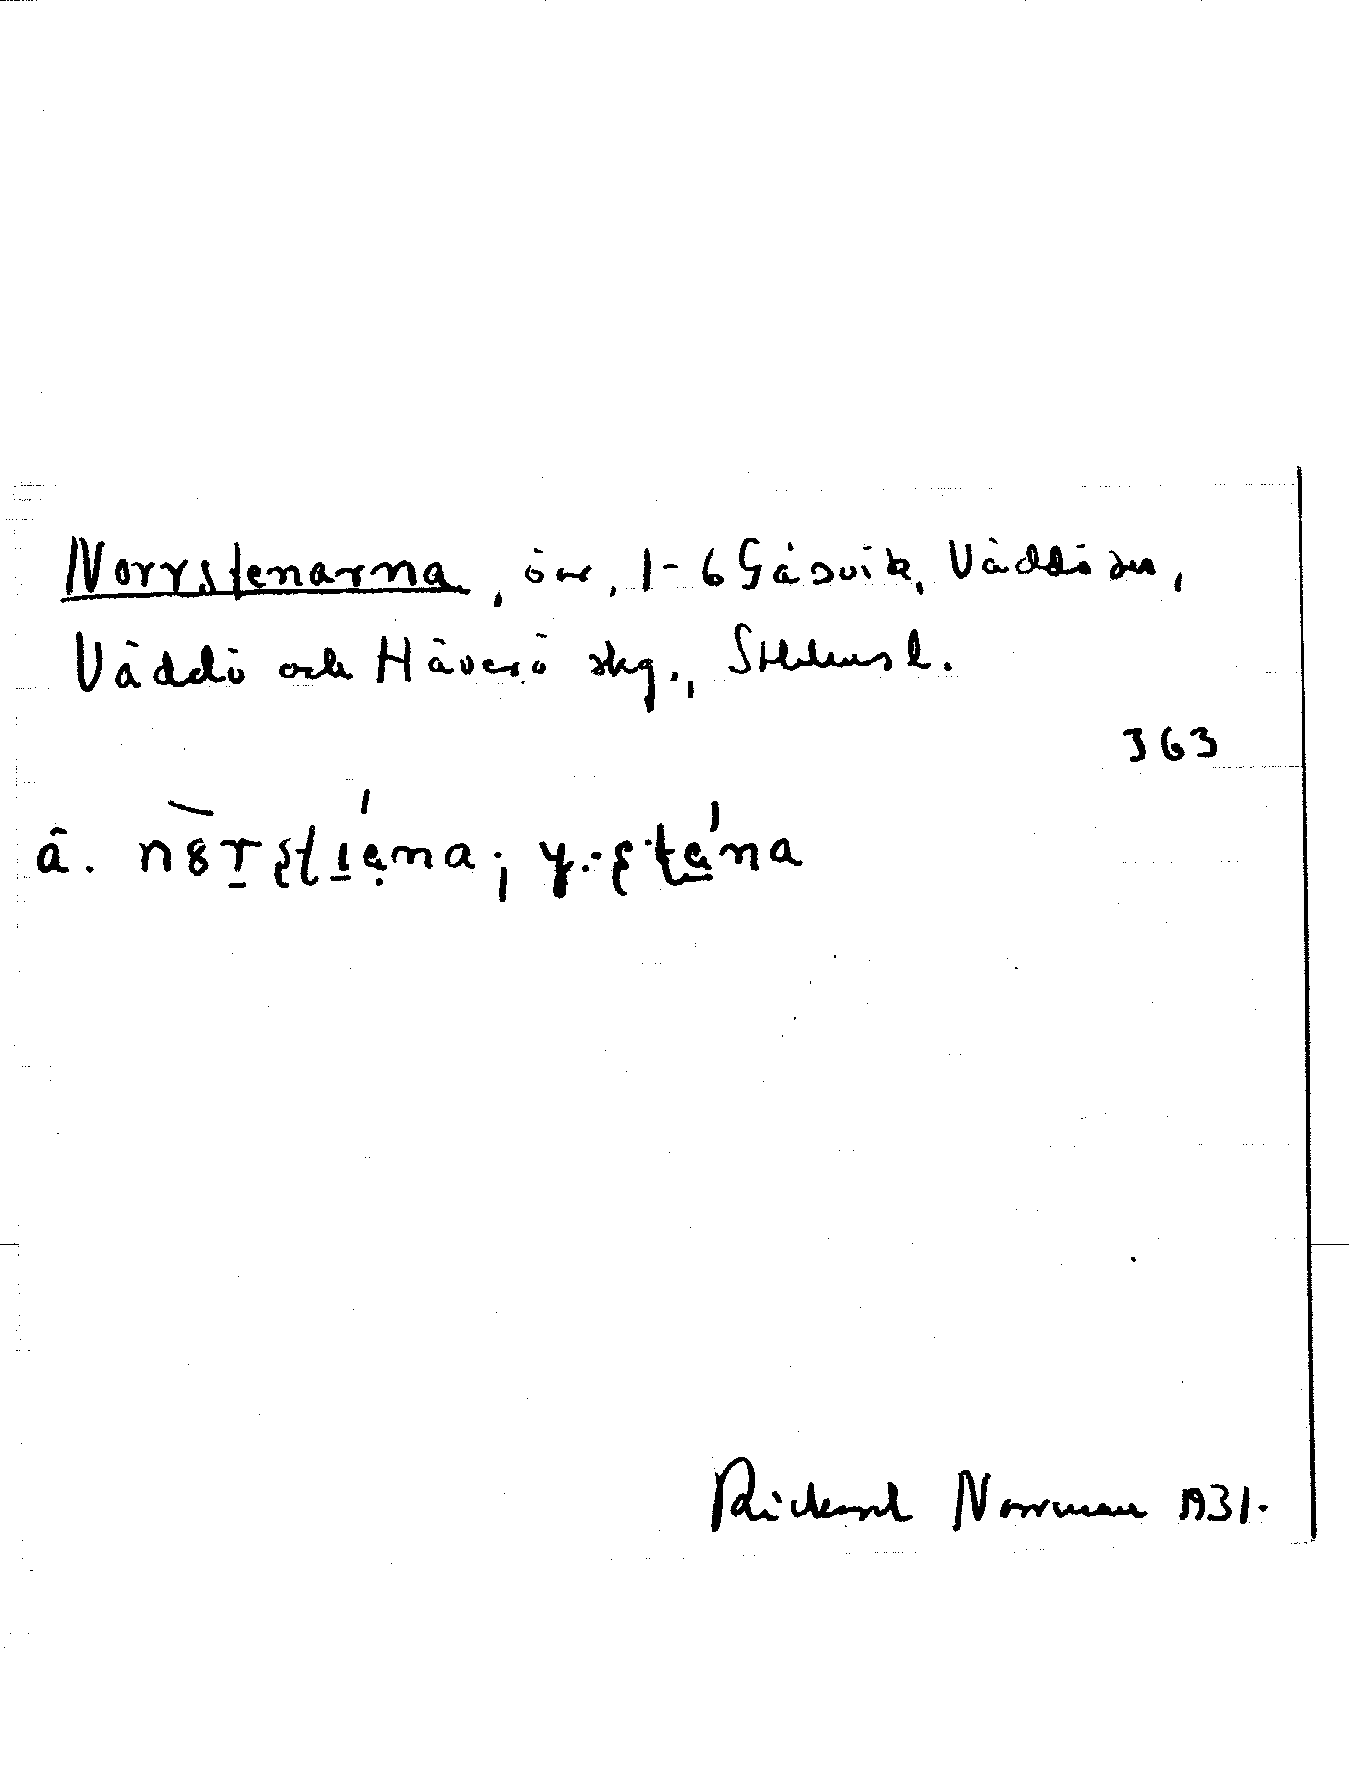 Norrstenarna, öar, 1-6 Gåsvik, Väddö sn,
Väddö och Häverö skg., Sthlmsl.
363
ä. 
Rickard Norrman 1931.